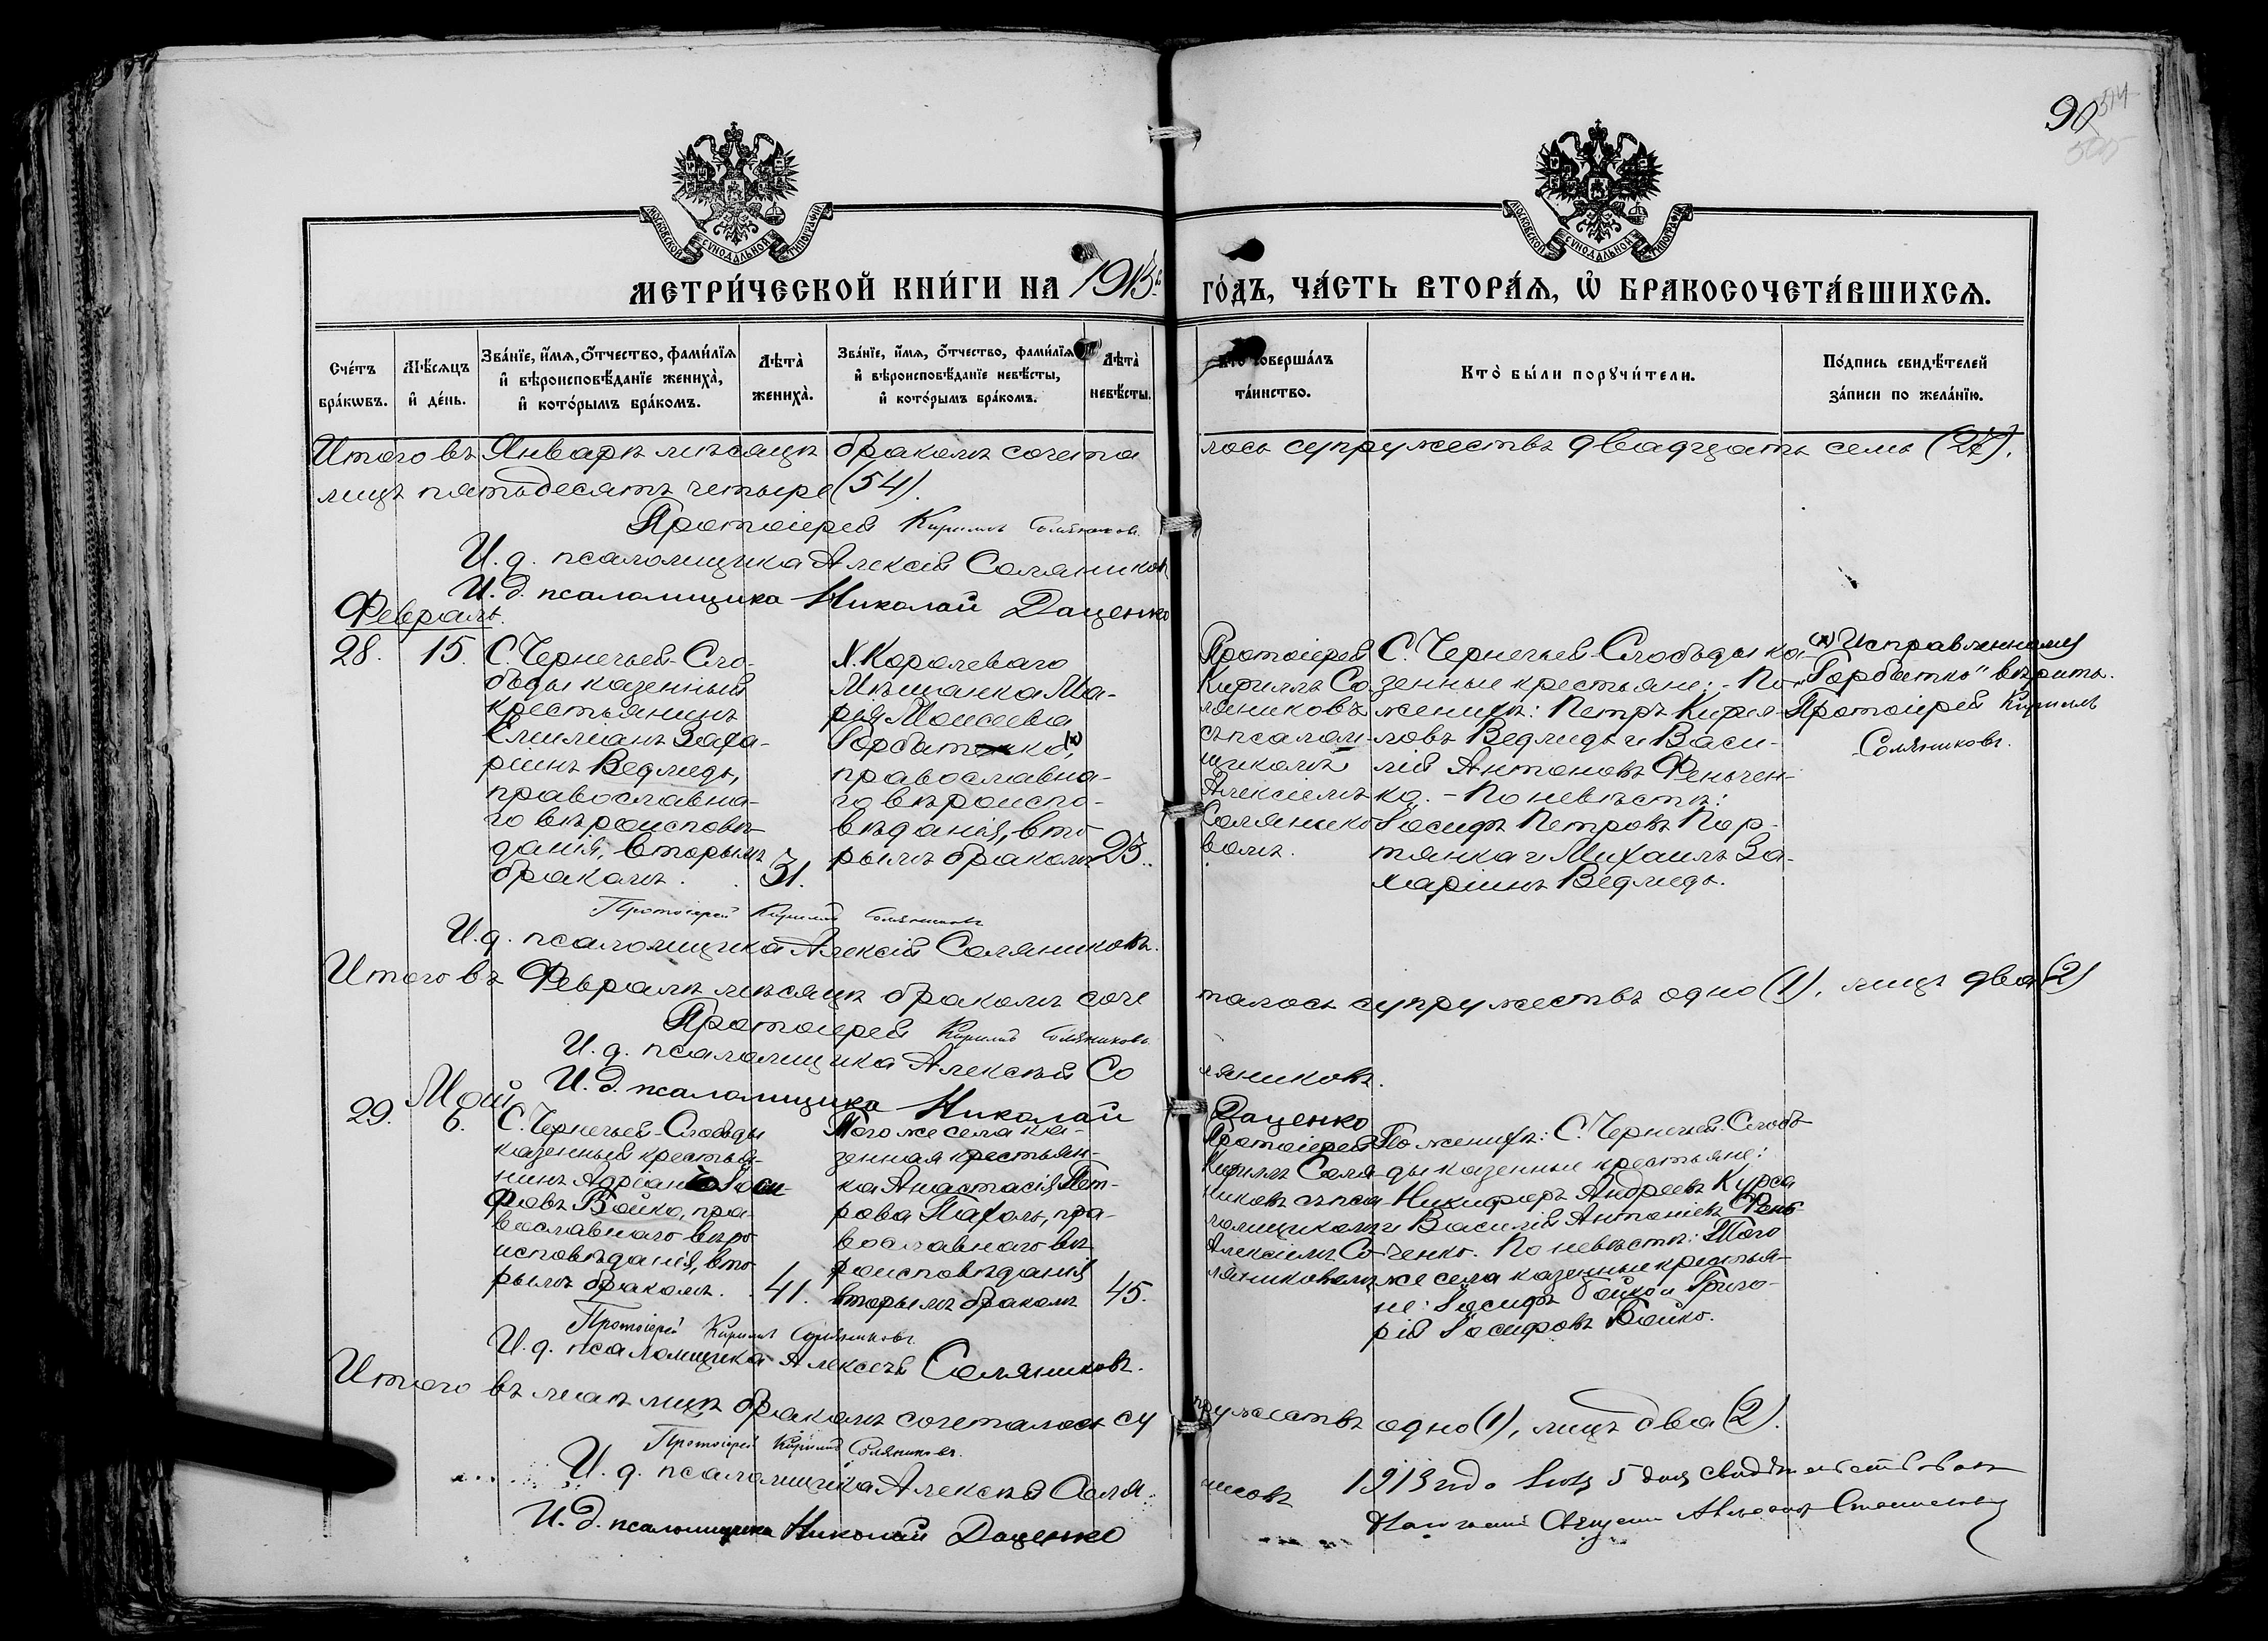 90
МОСКОВСКОЙ СѴНОДАЛЬНОЙ ТИПОГРАФІИ
МОСКОВСКОЙ СѴНОДАЛЬНОЙ ТИПОГРАФІИ
МЕТРИ́ЧЕСКОЙ КНИ́ГИ НА 1913
ГО́ДЪ, ЧА́СТЬ ВТОРА́Ѧ, Ѡ҆ БРАКОСОЧЕТА́ВШИХСѦ.
Сче́тъ бра́кѡвъ.
Мѣ́сѧцъ и҆ де́нь.
Зва́нїе, и҆́мѧ, ѻ҆́тчество, фами́лїѧ
и҆ вѣроисповѣ́данїе жениха̀,
и҆ кото́рымъ бра́комъ.
Лѣта̀ жениха̀.
Зва́нїе, и҆́мѧ, ѻ҆́тчество, фами́лїѧ
и҆ вѣроисповѣ́данїе невѣ́сты,
и҆ кото́рымъ бра́комъ.
Лѣта̀ невѣ́сты.
Кто̀ соверша́лъ та́инство.
Кто̀ бы́ли порꙋчи́тели.
По́дпись свидѣ́телей
за́писи по жела́нїю.
Итого въ Январѣ мѣсяцѣ бракомъ сочета
лось супружествъ двадцать семь (27),
лицъ пятьдесятъ четыре (54).
Протоіерей Кириллъ Соляниковъ.
И. д. псаломщика Алексій Соляниковъ
И. д. псаломщика Николай Даценко
Февраль.
28.
15.
С. Чернечьей-Сло-
боды казенный
крестьянинъ
Емиліанъ Заха-
ріинъ Ведмедь,
православна-
го вѣроисповѣ-
данія, вторымъ
бракомъ.
31.
Х. Королеваго
Мѣщанка Ма-
рія Моисеева
Горбатко (х),
православна-
го вѣроиспо-
вѣданія, вто-
рымъ бракомъ
23.
Протоіерей
Кириллъ Со-
ляниковъ
съ псалом-
щикомъ
Алексіемъ
Соляныко-
вомъ.
С. Чернечьей-Слободы ка-
зенные крестьяне: - По
женихѣ: Петръ Кирил-
ловъ Ведмедь и Васи-
лій Антоновъ Феньчен-
ко. - По невѣстѣ:
Іосифъ Петровъ Пор-
тянка и Михаилъ За-
харіинъ Ведмедь.
(х) Исправленному
"Горбатко" вѣрить.
Протоіерей Кириллъ
Соляниковъ.
Протоіерей Кириллъ Соляниковъ
И. д. псаломщика Алексій Соляниковъ.
Итого въ Февралѣ мѣсяцѣ бракомъ соче
талось супружествъ одно (1), лицъ два (2)
Протоіерей Кириллъ Соляниковъ.
И. д. псаломщика Алексѣй Со
ляниковъ.
И. д. псаломщика Николай
Даценко
Май
29.
6.
С. Чернечьей-Слободы
казенный крестья-
нинъ Адріанъ Іоси-
фовъ Бойко, пра-
вославнаго вѣро
исповѣданія, вто
рымъ бракомъ.
41.
Того же села ка-
зенная крестьян-
ка Анастасія Пет-
рова Пахоль, пра-
вославнаго вѣ-
роисповѣданія
вторымъ бракомъ
45.
Протоіерей
Кириллъ Соля-
никовъ съ пса-
ломщикомъ
Алексіемъ Со-
ляниковымъ
По женихѣ: С. Чернечьей-Слобо-
ды казенные крестьяне:
Никифоръ Андреевъ Курса
и Василій Антоніевъ Фень-
ченко. По невѣстѣ: Того
же села казенные крестья-
не: Іосифъ Бойко и Григо-
рій Іосифовъ Бойко.
Протоіерей Кириллъ Соляниковъ
И. д. псаломщика Алексѣй Соляниковъ.
Итого въ маѣ мцѣ бракомъ сочеталось су
пружествъ одно (1), лицъ два (2).
Протоіерей Кириллъ Соляниковъ.
И. д. псаломщика Алексѣй Соля-
никовъ
И. д. псаломщика Николай Даценко
1913 года 5 дня свидѣтельствовалъ